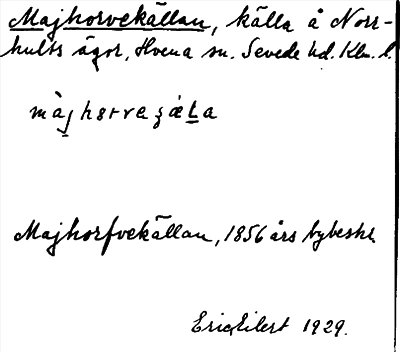 Majhorvekällan, källa å Norr-
hults ägor, Hvena sn. Sevede hd. Klm. l.
Majhorfvekällan, 1856 års bybeskr.
Eric Eilert 1929.